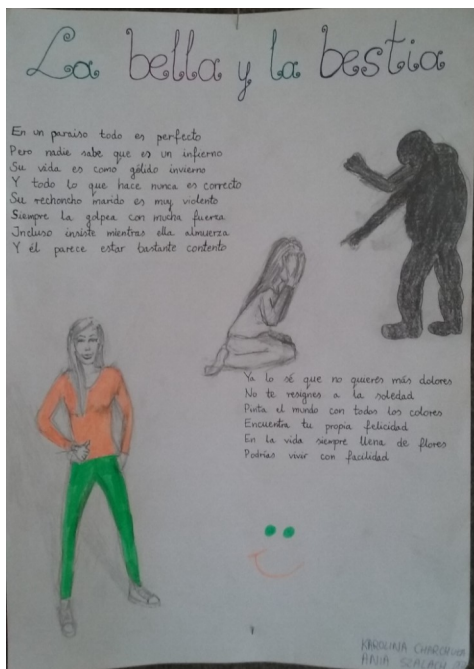 La bella y la bestia
En un paraiso todo es perfecto
Pero nadie sabe que es un infierno
Su vida es como gélido invierno
Y todo lo que hace nunca es correcto
Su rechoncho marido es muy violento
Siempre la golpea con mucha fuerza
Incluso insiste mientras ella almuerza
Y él parece estar bastante contento
Ya lo sé que no quieres más dolores
No te resignes a la soledad
Pinta el mundo con todos los colores
Encuentra tu propia felicidad
En la vida siempre llena de flores
Podrías vivir con facilidad
KAROLINA
ANIA